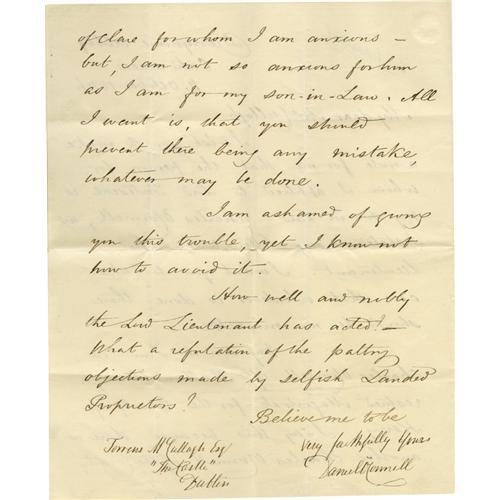 of Clare for whom I am anxious –
but, I am not so anxious for him
as I am for my son-in-Law. All
I want is, that you should
prevent there being any mistake,
whatever may be done.
I am ashamed of giving
you this trouble, yet I know not
how to avoid it.
How well and nobly
the Lord Lieutenant has acted! –
What a refutation of the paltry
objections made by selfish Landed
Proprietors!
Believe me to be
Very faithfully Yours
Daniel O'Connell
Torrens McCullagh Esq
"The Castle"
Dublin